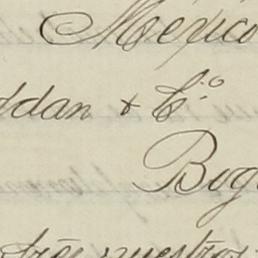 México
ddan & Cº
Bog
nuestros